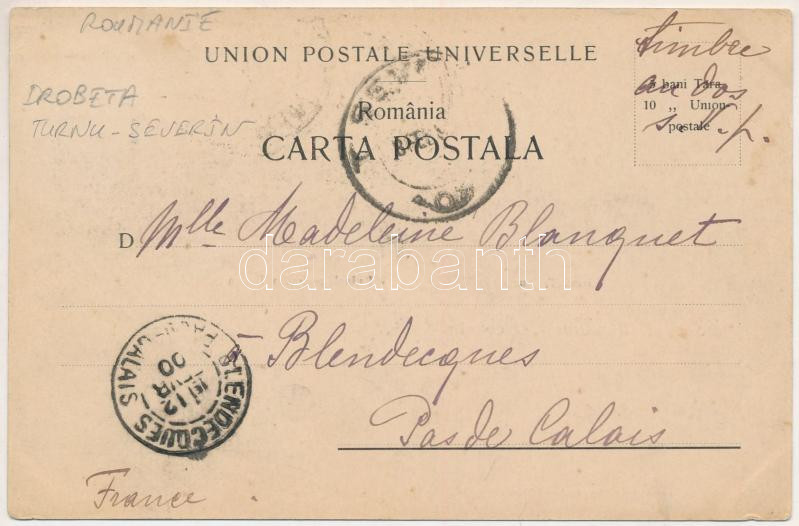 ROUMANIE
UNION POSTALE UNIVERSELLE
Timbre
au dos
s.v.p.
5 bani Țara
10 „ Union
postale
DROBETA
TURNU-SEVERIN
România
CARTA POSTALA
D Mlle Madeleine Blanquet
darabanth
à Blendecques
BLENDECQUES
PAS-DE-CALAIS
12
00
Pas de Calais
France